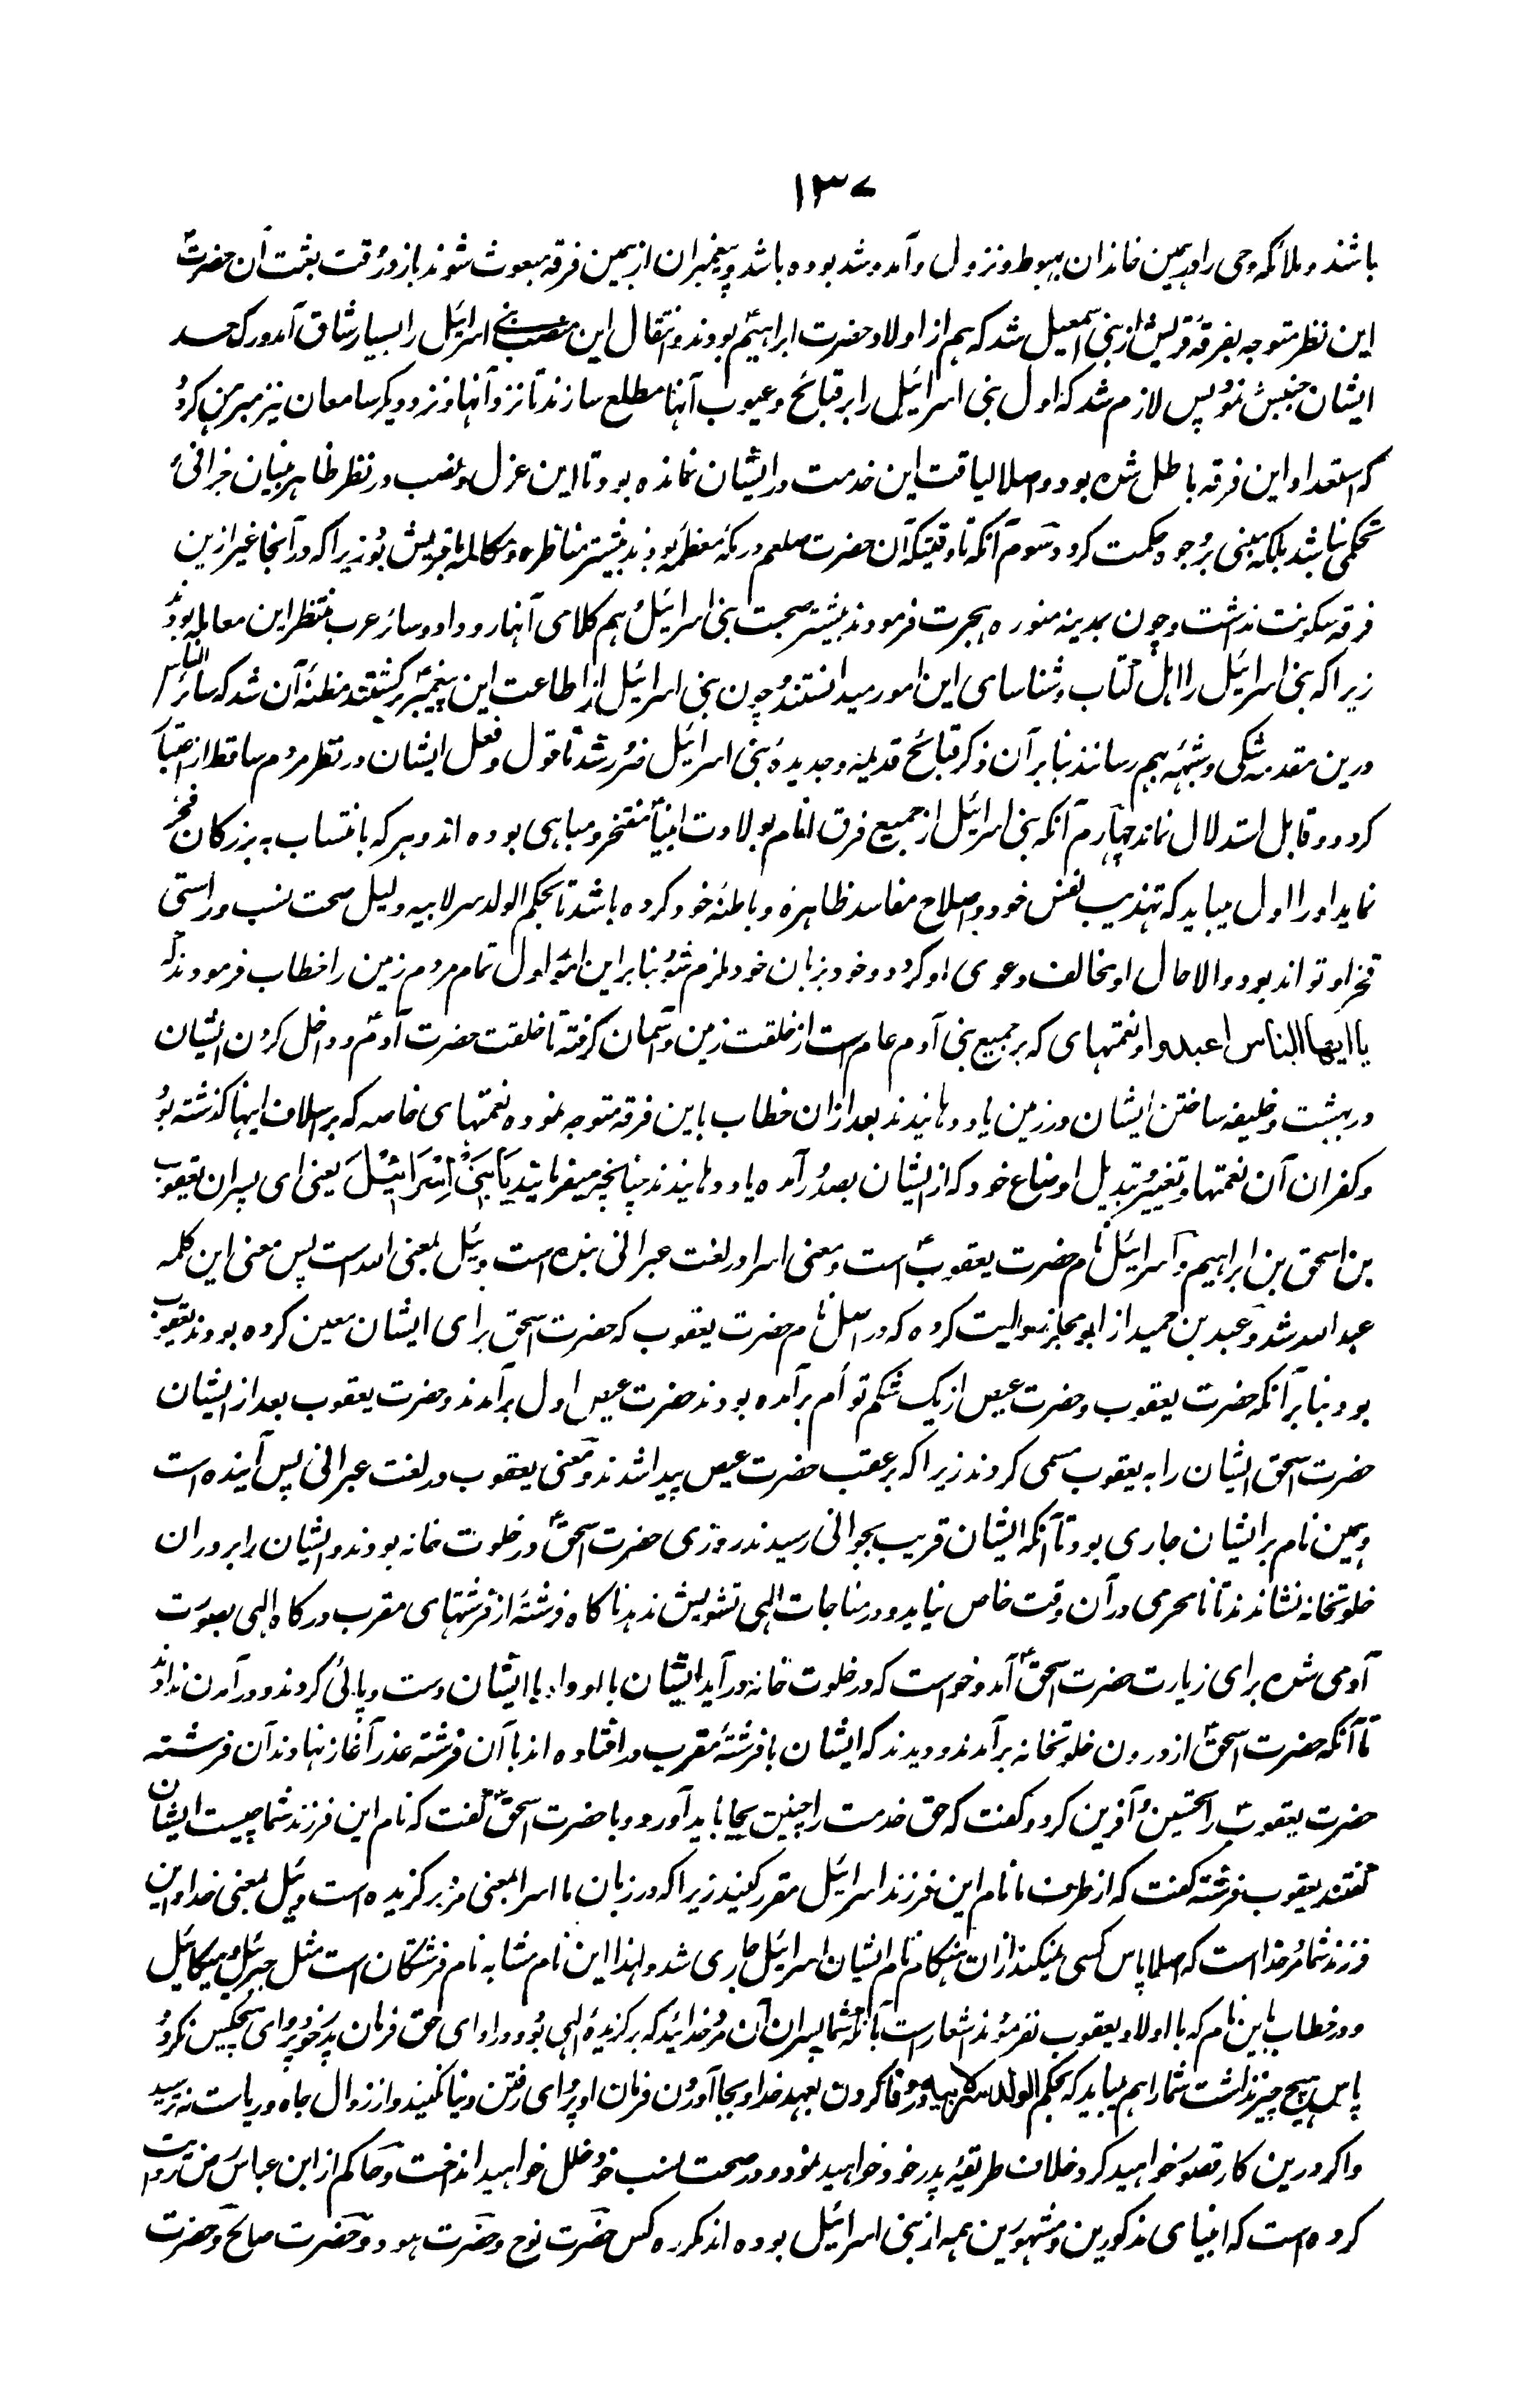 ۱۳۷
باشند و ملائکه وحی را در همین خاندان هبوط و نزول و آمد و شد بوده باشد و پیغمبران از همین فرقه مبعوث شوند باز در وقت بعثت آن حضرتؐ
این نظر متوجه بفرقهٔ قریش از بنی اسمعیل شد که هم از اولاد حضرت ابراهیمؑ بودند و انتقال این منصب بنی اسرائیل را بسیار شاق آمد و رگ حسد
ایشان جنبش نمود پس لازم شد که اول بنی اسرائیل را بر قبائح و عیوب آنها مطلع سازند تا نزد آنها و نزد دیگر سامعان نیز مبرهن گردد
که استعداد این فرقه باطل شده بود و اصلا لیاقت این خدمت در ایشان نمانده بود تا این عزل و نصب در نظر ظاهر بینان جزافی و
تحکمی نباشد بلکه مبنی بر وجوه حکمت گردد سوم آنکه تا وقتیکه آن حضرت صلعم در مکهٔ معظمه بودند بیشتر مناظره و مکالمه با قریش بود زیرا که در آنجا غیر ازین
فرقه سکونت نداشت و چون بمدینه منوره هجرت فرمودند بیشتر صحبت بنی اسرائیل و هم کلامی آنها رو داد و سائر عرب منتظر این معامله بودند
زیرا که بنی اسرائیل را اهل کتاب و شناسای این امور میدانستند و چون بنی اسرائیل از اطاعت این پیغمبر برگشتند مظنهٔ آن شد که سائر الناس را
درین مقدمه شکی و شبهه بهم رسانند بنا بر آن ذکر قبائح قدیمه و جدیدهٔ بنی اسرائیل ضرور شد تا قول و فعل ایشان در نظر مردم ساقط از اعتبار
گردد و قابل استدلال نماند چهارم آنکه بنی اسرائیل از جمیع فرق انام بولادت انبیا مفتخر و مباهی بوده اند و هر که بانتساب به بزرگان فخر
نماید او را اول میباید که تهذیب نفس خود و اصلاح مفاسد ظاهره و باطنهٔ خود کرده باشد تا بحکم الولد سر لابیه دلیل صحت نسب و راستی
فخر او تواند بود و الا حال او مخالف دعوی او گردد و خود بزبان خود ملزم شود بنا براین امور اول تمام مردم زمین را خطاب فرمودند که
یا ایها الناس اعبدوا و نعمتهای که بر جمیع بنی آدم عام است از خلقت زمین و آسمان گرفته تا خلقت حضرت آدمؑ و داخل کردن ایشان
در بهشت و خلیفه ساختن ایشان در زمین یاد دهانیدند بعد از ان خطاب باین فرقه متوجه نموده نعمتهای خاصه که بر اسلاف اینها گذشته بود
و کفران آن نعمتها و تغییر و تبدیل اوضاع خود که از ایشان بصدور آمده یاد دهانیدند چنانچه میفرمایند یَا بَنِیْ اِسْرَائِیْلَ یعنی ای پسران یعقوب
بن اسحق بن ابراهیم و اسرائیل نام حضرت یعقوبؑ است و معنی اسرا در لغت عبرانی بنده است و ئیل بمعنی الله است پس معنی این کلمه
عبدالله شد و عبد بن حمید از ابو مجلز روایت کرده که در اصل نام حضرت یعقوب که حضرت اسحق برای ایشان معین کرده بودند یعقوب
بود بنا بر آنکه حضرت یعقوب و حضرت عیص از یک شکم تو أم برآمده بودند حضرت عیص اول برآمدند و حضرت یعقوب بعد از ایشان
حضرت اسحق ایشان را به یعقوب مسمی کردند زیرا که بر عقب حضرت عیص پیدا شدند و معنی یعقوب در لغت عبرانی پس آینده است
و همین نام بر ایشان جاری بود تا آنکه ایشان قریب بجوانی رسیدند روزی حضرت اسحقؑ در خلوت خانه بودند و ایشان را بر در آن
خلوتخانه نشاندند تا نامحرمی در آن وقت خاص نیاید و در مناجات الهی تشویش ندهد ناگاه فرشتهٔ از فرشتهای مقرب درگاه الهی بصورت
آدمی شده برای زیارت حضرت اسحقؑ آمد و خواست که در خلوت خانه در آید ایشان با او و او با ایشان دست و پائی کردند و در آمدن ندادند
تا آنکه حضرت اسحقؑ از درون خلوتخانه برآمدند و دیدند که ایشان با فرشتهٔ مقرب در افتاده اند با آن فرشته عذر آغاز نهادند آن فرشته
حضرت یعقوبؑ را تحسین و آفرین کرد و گفت که حق خدمت را چنین بجا باید آورد و با حضرت اسحقؑ گفت که نام این فرزند شما چیست ایشان
گفتند یعقوب فرشته گفت که از طرف ما نام این فرزند اسرائیل مقرر کنید زیرا که در زبان ما اسرا بمعنی مرد برگزیده است و ئیل بمعنی خدا و این
فرزند شما مرد خدا است که اصلا پاس کسی نمیکند از ان هنگام نام ایشان اسرائیل جاری شد و لهذا این نام مشابه نام فرشتگان است مثل جبرئیل و میکائیل
و در خطاب باین نام که با اولاد یعقوب نفرمودند اشعار است بآنکه شما پسران آن مرد خدائید که برگزیدهٔ الهی بود و در ادای حق فرمان پدر خود پروای هیچکس نکرد و
پاس هیچ چیز نداشت شما را هم میباید که بحکم الولد سر لابیه در وفا کردن بعهد خدا و بجا آوردن فرمان او پروای رفتن دنیا نکنید و از زوال جاه و ریاست نترسید
و اگر درین کار قصور خواهید کرد خلاف طریقهٔ پدر خود خواهید نمود و در صحت نسب خود خلل خواهید انداخت و حاکم از ابن عباس رض روایت
کرده است که انبیای مذکورین و مشهورین همه از بنی اسرائیل بوده اند مگر ده کس حضرت نوح و حضرت هود و حضرت صالح و حضرت